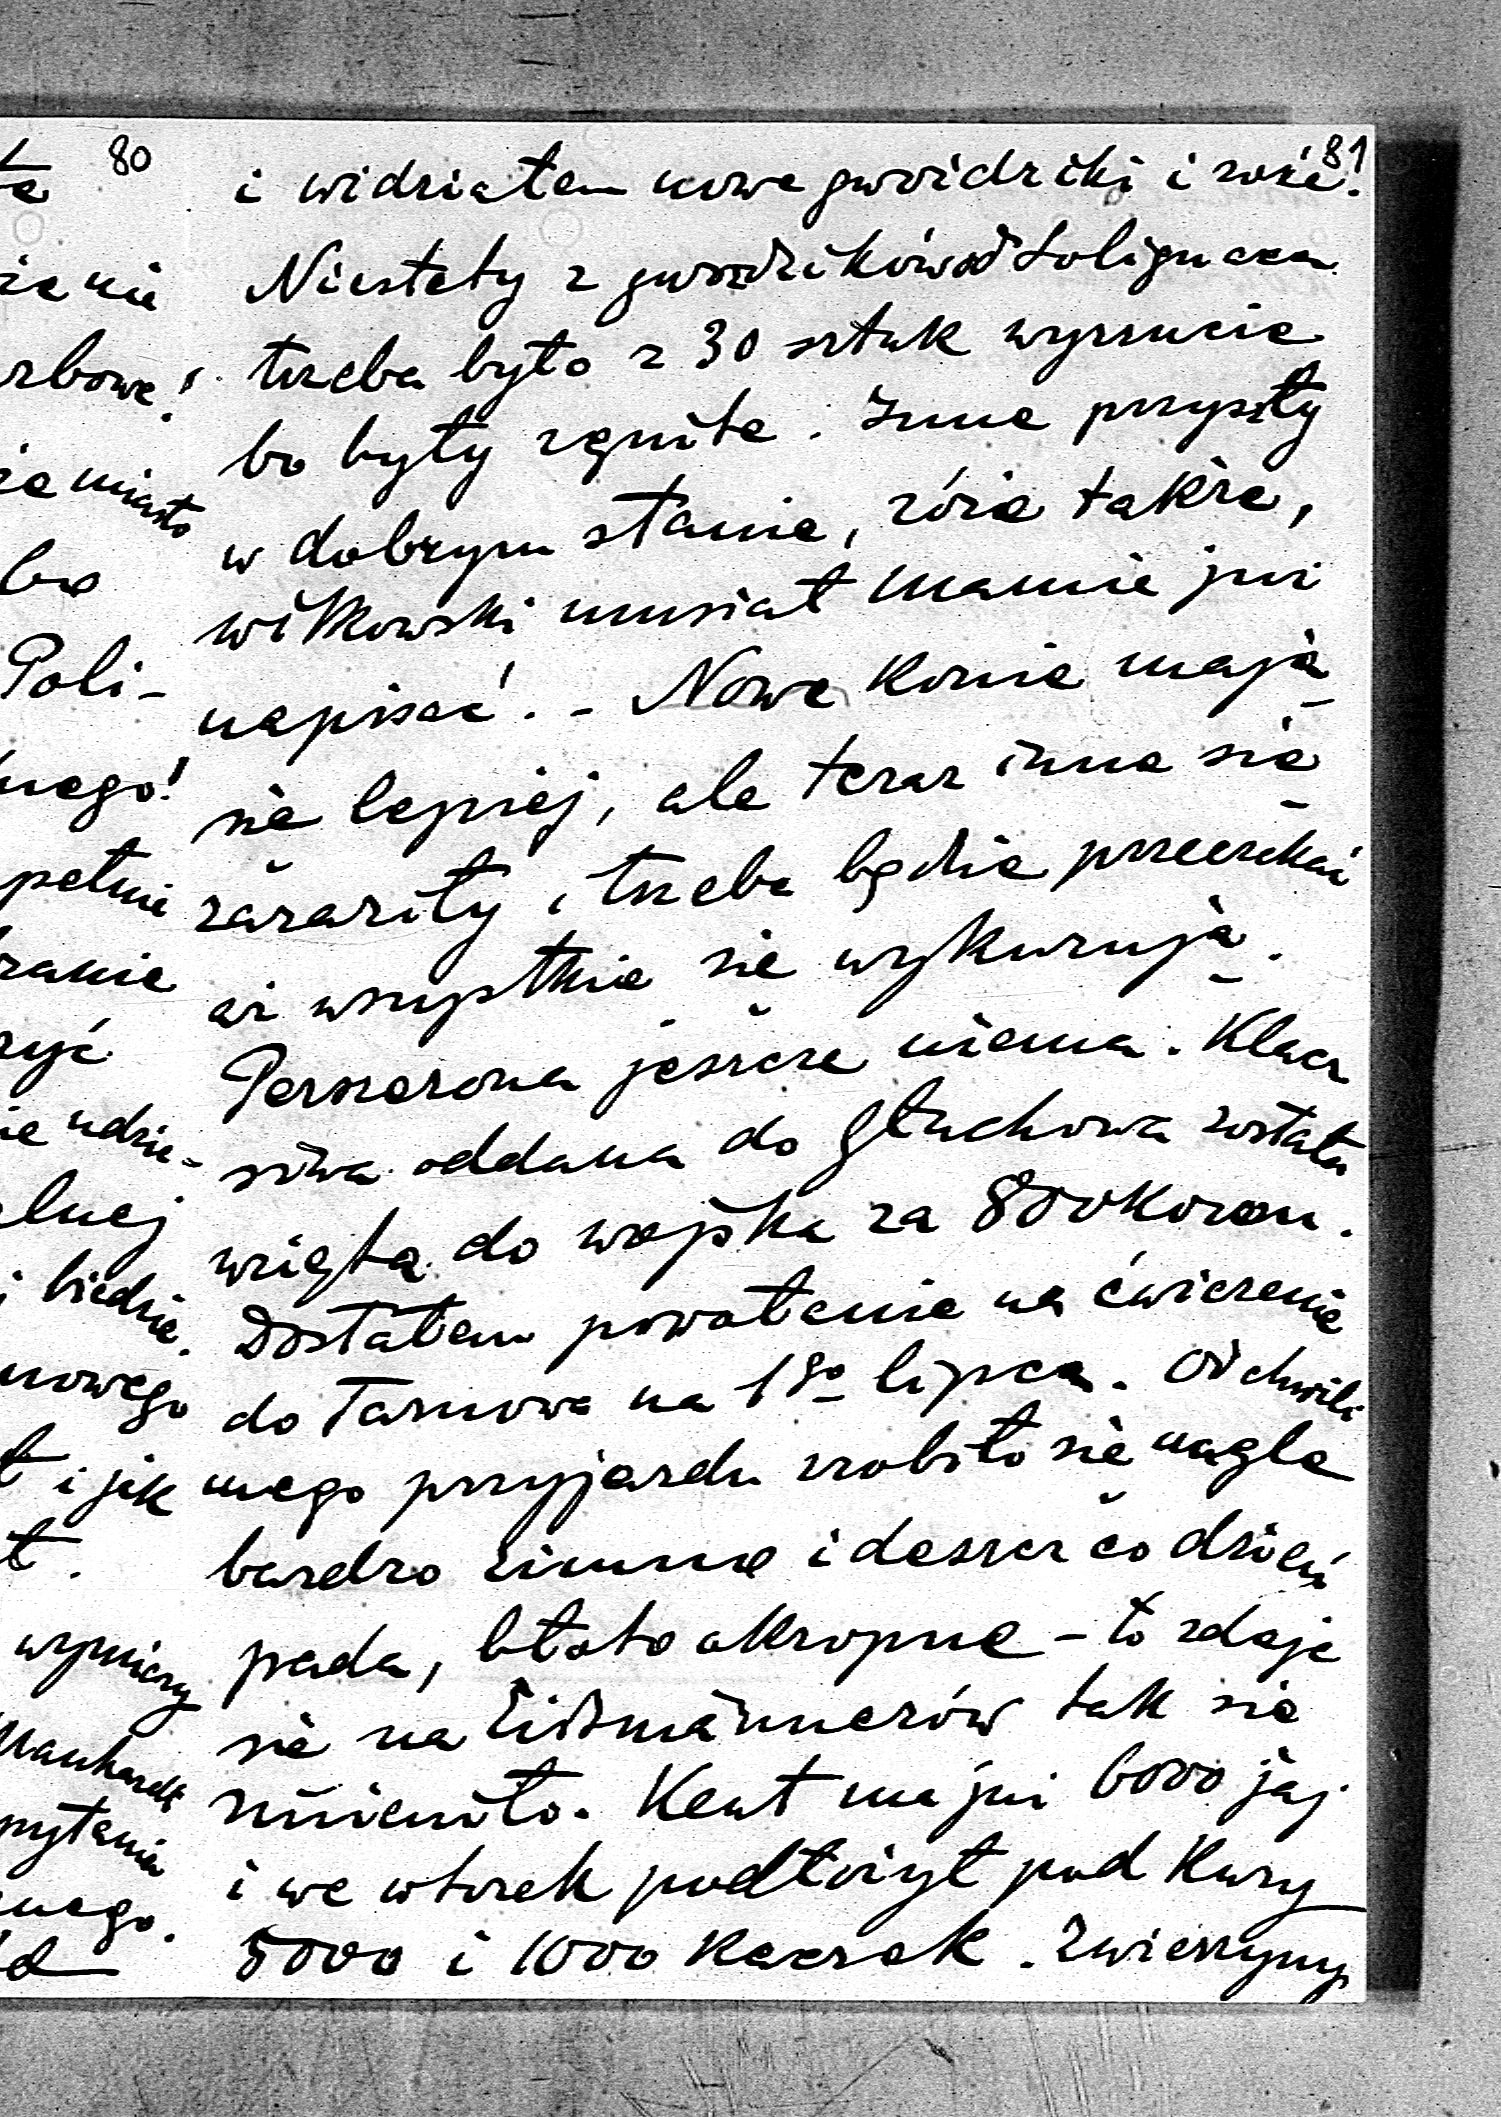 80
te
nie
rbowe!
ie miasto
bo
Poli-
nego!
pełnie
ranie
ryć
ie udzie-
lnej
i biednie.
nowego
t i jak
t.
wymiary
Manhardt
pytania
nego.
81
i widziałem nowe gwoździki i róże.
Niestety z gwoździków od Solignaca
trzeba było z 30 sztuk wyrzucić
bo były zgniłe. Inne przyszły
w dobrym stanie, róże także,
Witkowski musiał Mamie już
napisać. - Nowe konie mają
się lepiej, ale teraz inne się
zaraziły i trzeba będzie przeczekać
aż wszystkie się wykurują.
Perszerona jeszcze niema. Klacz
siwa oddana do Głuchowa została
wzięta do wojska za 800 Koron.
Dostałem powołanie na ćwiczenie
do Tarnowa na 18º lipca. Od chwili
mego przyjazdu zrobiło się nagle
bardzo zimno i deszcz co dzień
pada, błoto okropne - to zdaje
się na Eismännerów tak się
zmieniło. Kent ma już 6000 jaj
i we wtorek podłożył pod Kury
5000 i 1000 Kaczek. Zwierzyny